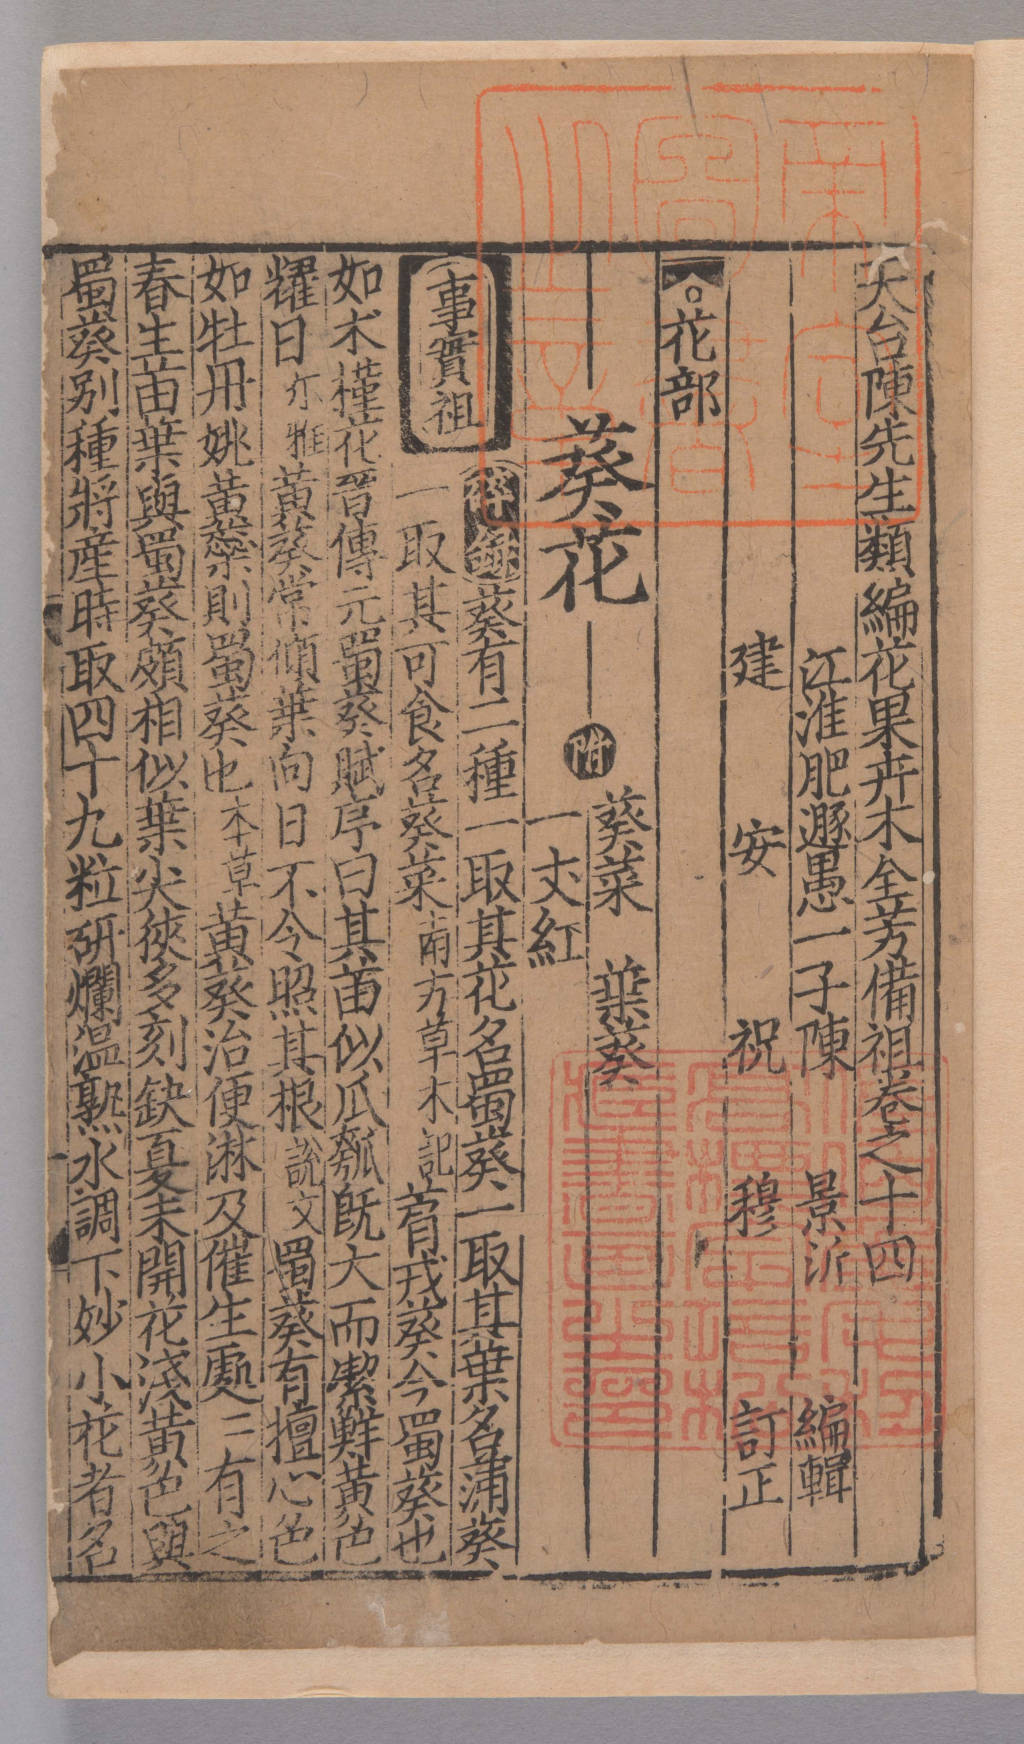 天台陳先生類編花果卉木全芳備祖卷之十四
江淮肥遯愚一子陳　景沂　編輯
建　安　祝　穆　訂正
花部
葵花　附　葵菜　葉葵
一丈紅
事實祖
葵有二種一取其花名蜀葵一取其葉名蒲葵
一取其可食名葵菜南方草木記　莃戎葵今蜀葵也
如木槿花晉傳元蜀葵賦序曰其苗似瓜瓠既大而潔鮮黃色
耀日尔雅黃葵常傾葉向日不令照其根說文蜀葵有擅心色
如牡丹姚黃蘂則蜀葵也本草黃葵治便淋及催生處處有之
春生苗葉與蜀葵頗相似葉尖狹多刻缺夏末開花淺黃色與
蜀葵别種將產時取四十九粒研爛温熟水調下妙小花者名